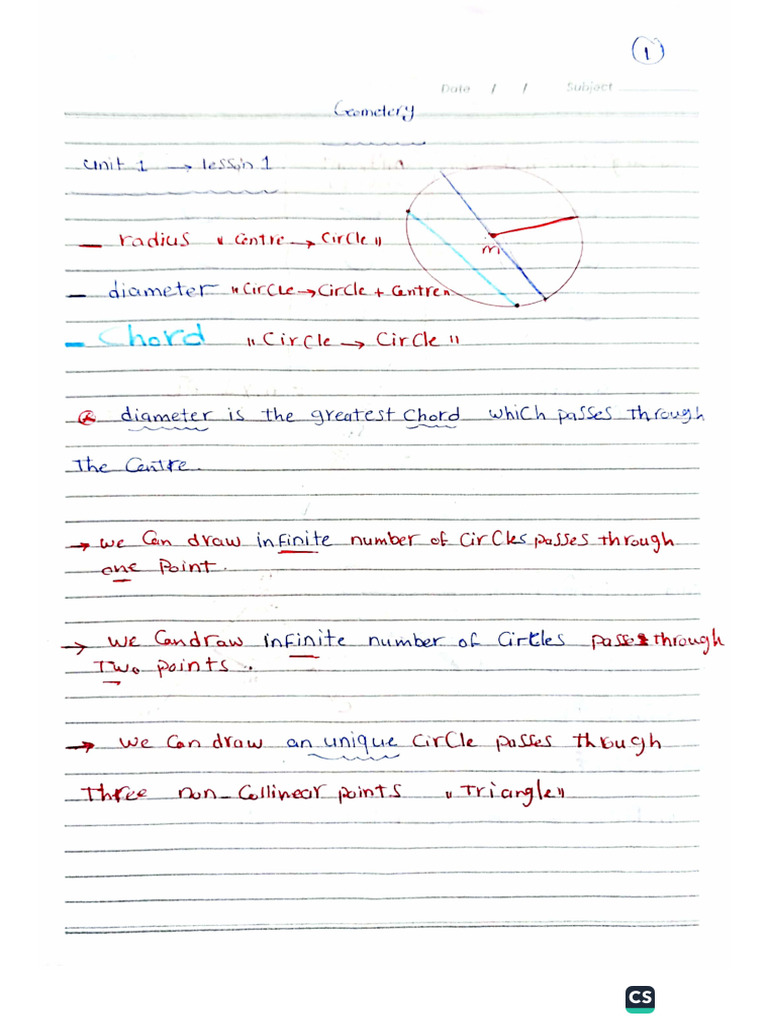 1
Date / / Subject
Geometery
Unit 1 → lesson 1
– radius " Centre → Circle "
m
– diameter " Circle → Circle + Centre "
– Chord " Circle → Circle "
diameter is the greatest Chord which passes Through
The Centre.
→ we Can draw infinite number of Circles passes through
one Point.
→ we Can draw infinite number of Circles passes through
Two points.
→ we Can draw an unique Circle passes through
Three non-Collinear points " Triangle "
CS